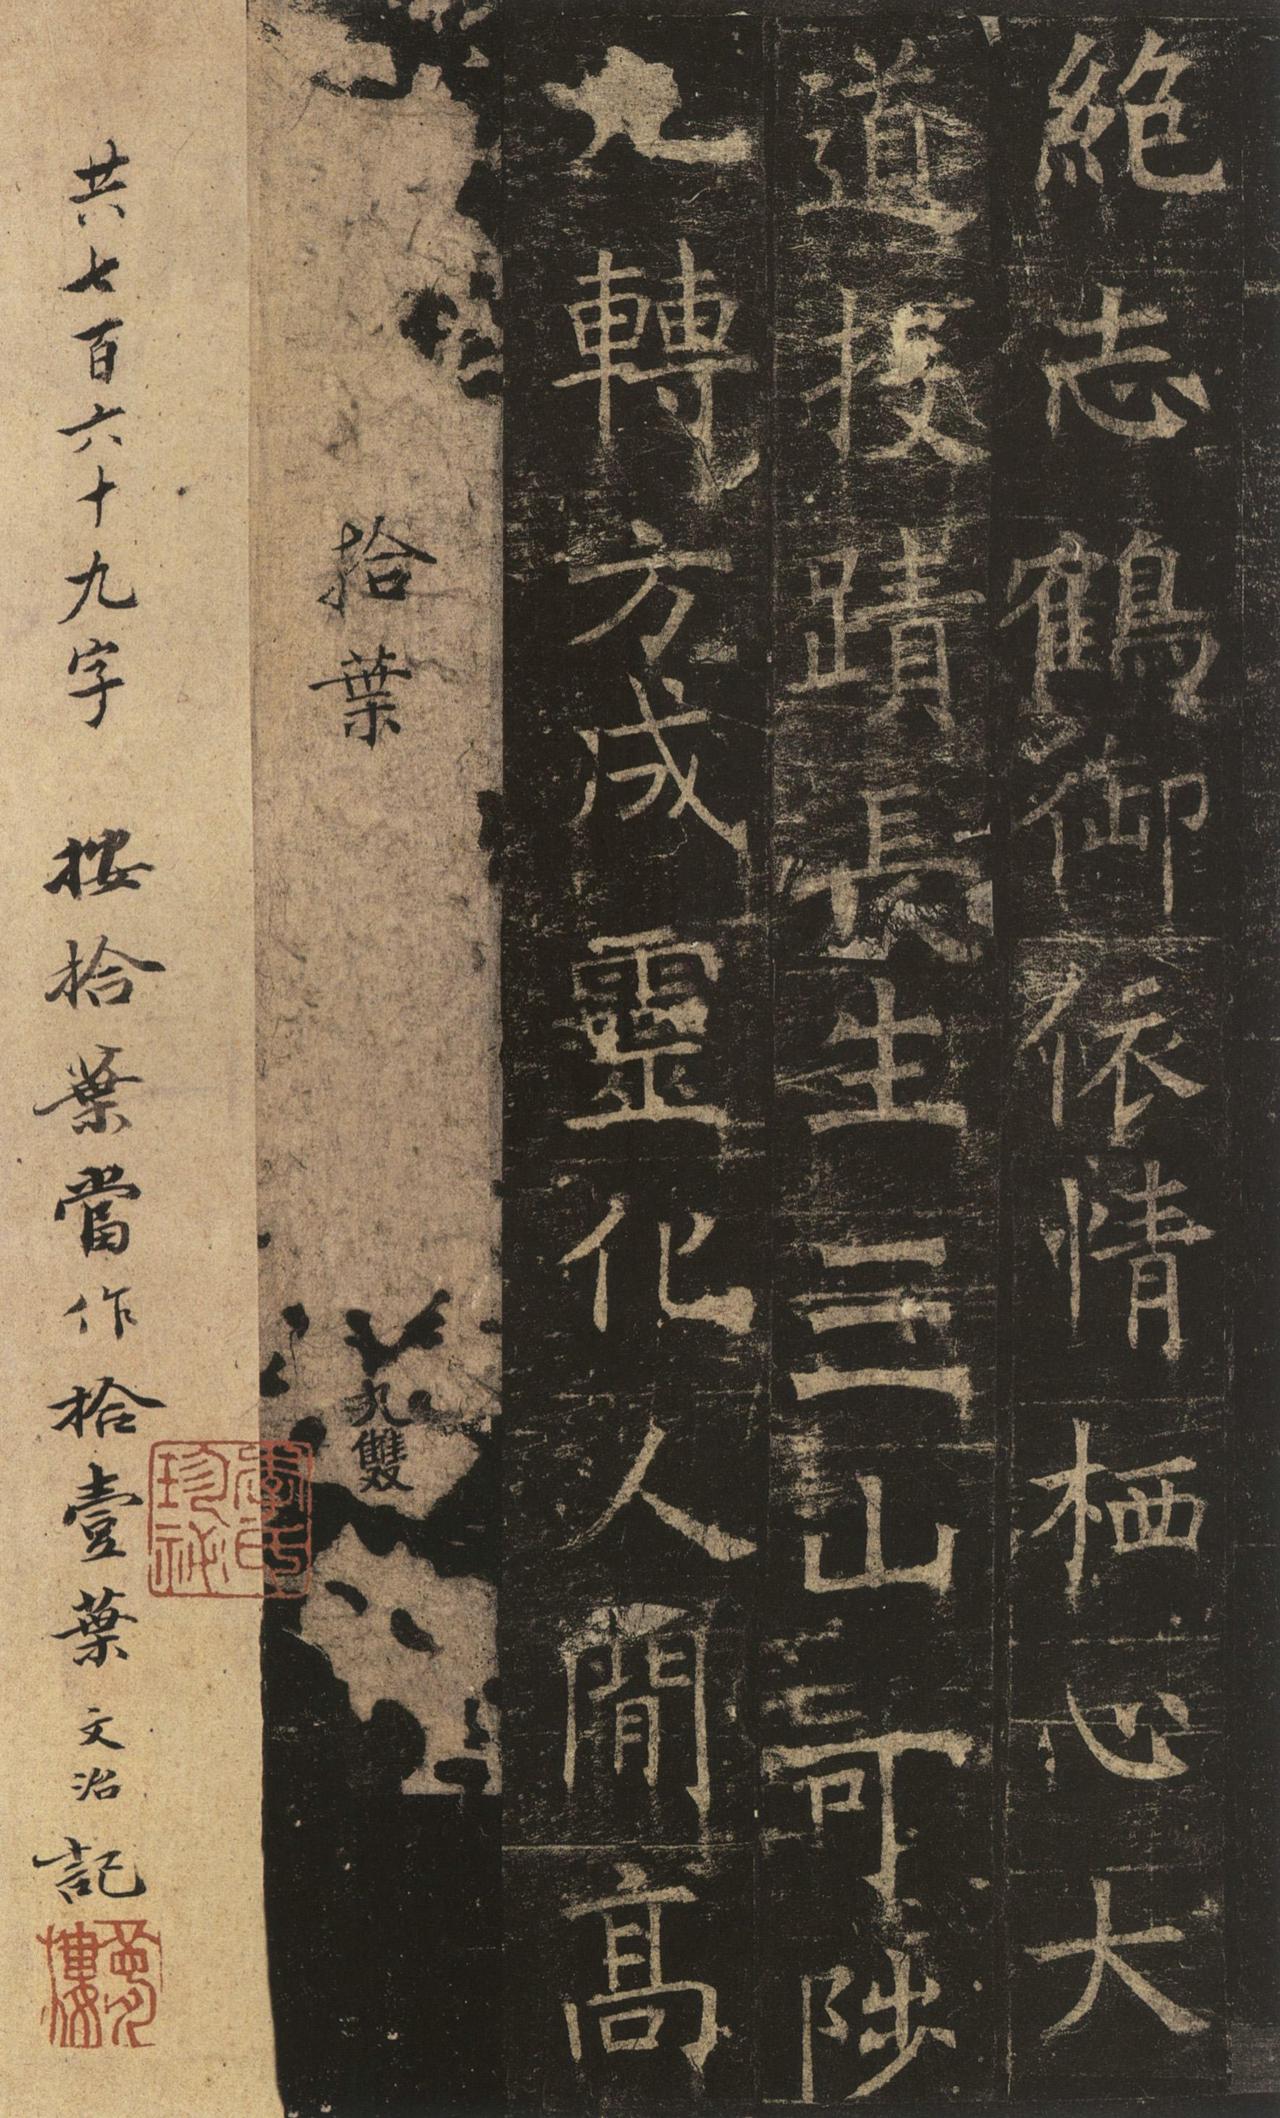 絶志鶴御依情栖心大
道投蹟長生三山可陟
九轉方成靈化人間髙
拾葉
九雙
共七百六十九字 按拾葉當作拾壹葉 文治記
李氏珍祕
夢樓